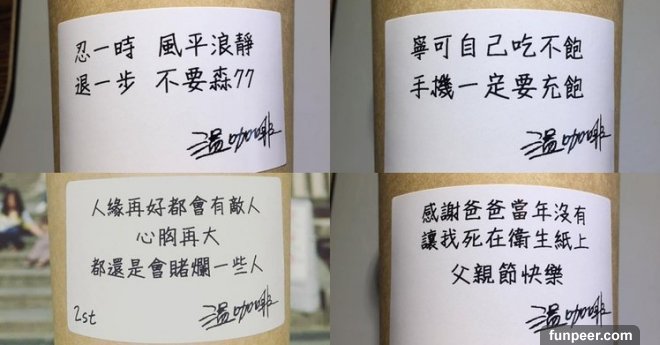 忍一時 風平浪靜
退一步 不要森77
溫咖啡
寧可自己吃不飽
手機一定要充飽
溫咖啡
人緣再好都會有敵人
心胸再大
都還是會賭爛一些人
2st
溫咖啡
感謝爸爸當年沒有
讓我死在衛生紙上
父親節快樂
溫咖啡
funpeer.com